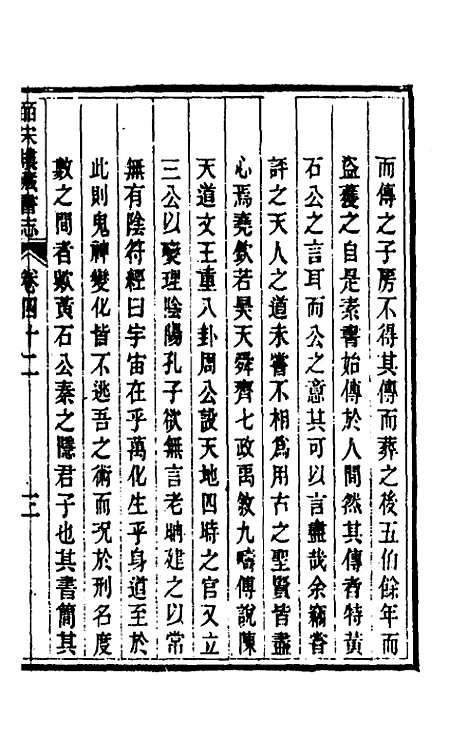 而傳之子房不得其傳而葬之後五伯餘年而
盜獲之自是素書始傳於人間然其傳者特黃
石公之言耳而公之意其可以言盡哉余竊嘗
評之天人之道未嘗不相爲用古之聖賢皆盡
心焉堯欽若昊天舜齊七政禹敘九疇傅說陳
天道文王重八卦周公設天地四時之官又立
三公以燮理陰陽孔子欲無言老聃建之以常
無有陰符經曰宇宙在乎萬化生乎身道至於
此則鬼神變化皆不逃吾之術而況於刑名度
數之間者歟黃石公秦之隱君子也其書簡其
皕宋樓藏書志 卷四十二